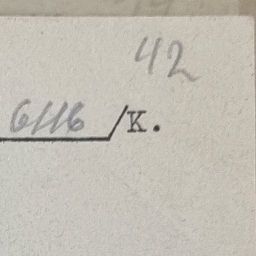 42
6116/K.